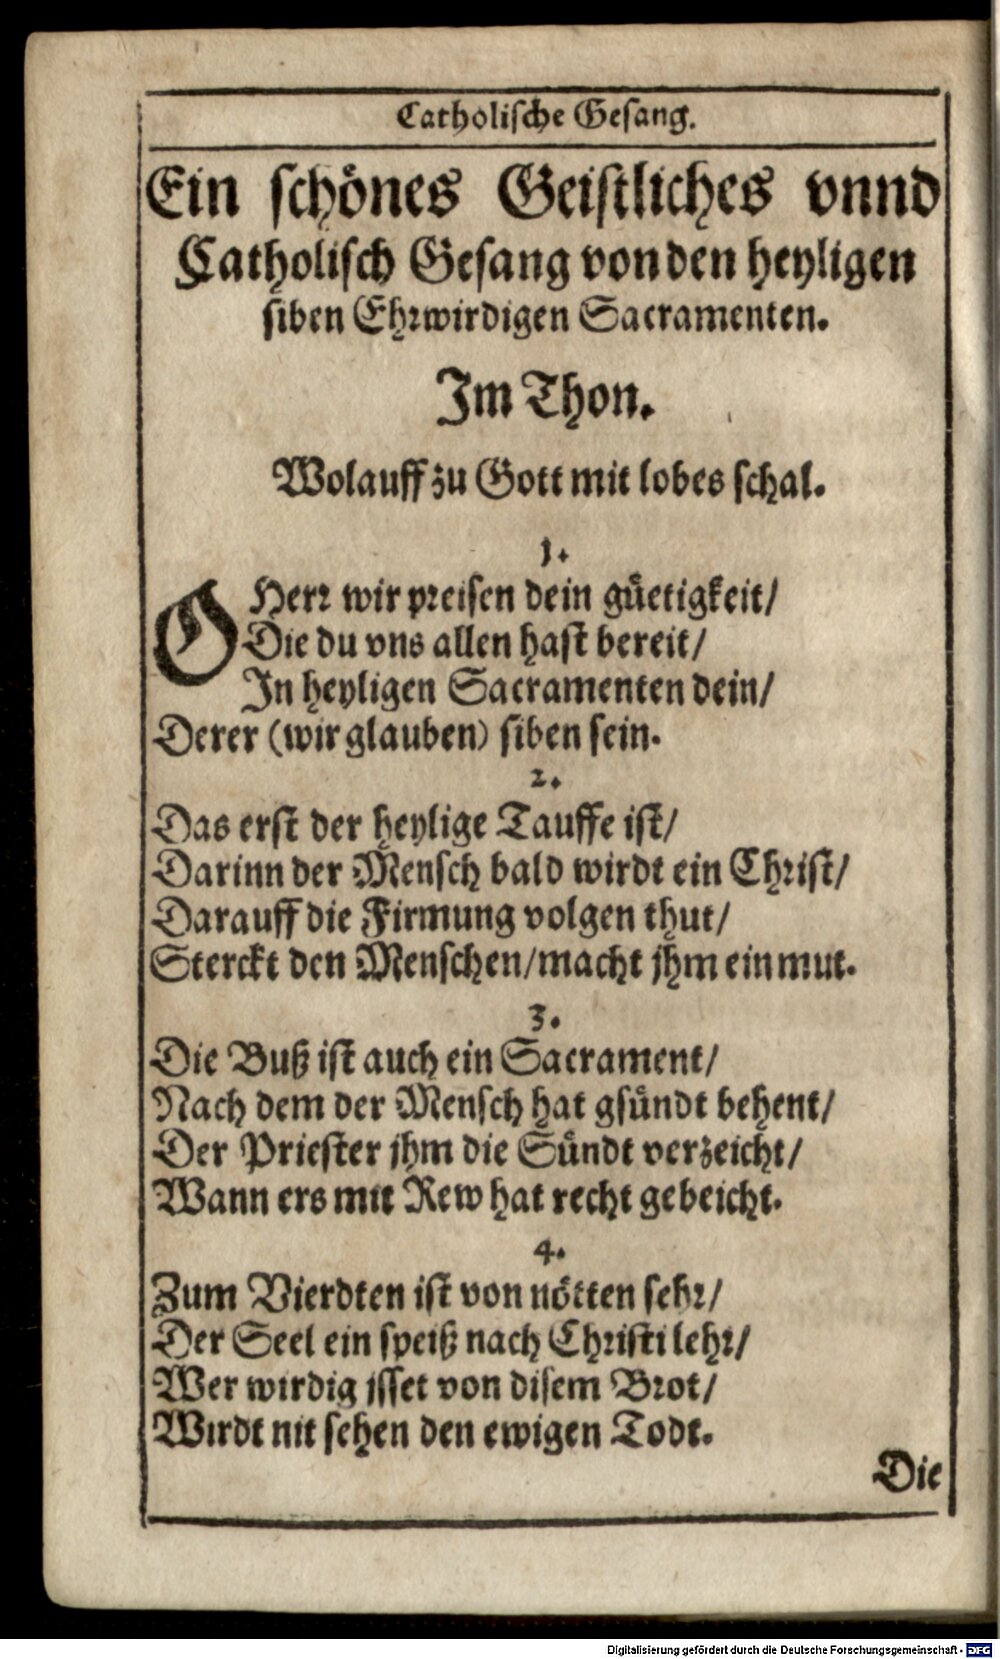 Catholische Gesang.
Ein schönes Geistliches vnnd
Catholisch Gesang von den heyligen
siben Ehrwirdigen Sacramenten.
Im Thon.
Wolauff zu Gott mit lobes schal.
1.
O Herr wir preisen dein güetigkeit/
Die du vns allen hast bereit/
In heyligen Sacramenten dein/
Derer (wir glauben) siben sein.
2.
Das erst der heylige Tauffe ist/
Darinn der Mensch bald wirdt ein Christ/
Darauff die Firmung volgen thut/
Sterckt den Menschen/macht jhm ein mut.
3.
Die Buß ist auch ein Sacrament/
Nach dem der Mensch hat gsündt behent/
Der Priester jhm die Sündt verzeicht/
Wann ers mit Rew hat recht gebeicht.
4.
Zum Vierdten ist von nötten sehr/
Der Seel ein speiß nach Christi lehr/
Wer wirdig jsset von disem Brot/
Wirdt nit sehen den ewigen Todt.
Die
Digitalisierung gefördert durch die Deutsche Forschungsgemeinschaft - DFG